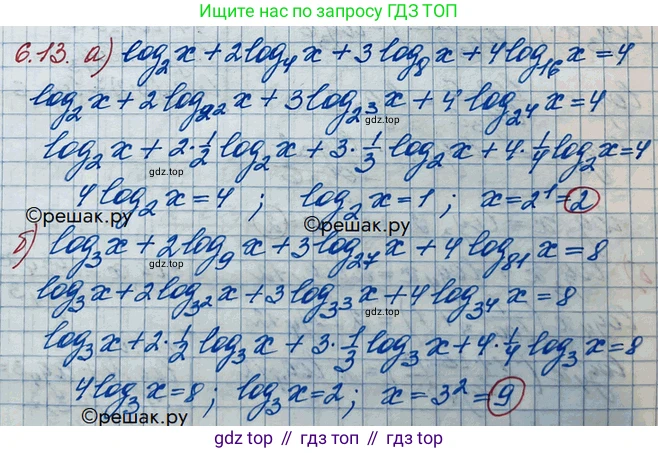 Ищите нас по запросу ГДЗ ТОП
6.13. а) log₂x + 2log₄x + 3log₈x + 4log₁₆x = 4
gdz top
log₂x + 2log₂²x + 3log₂³x + 4log₂⁴x = 4
log₂x + 2·1/2 log₂x + 3·1/3 log₂x + 4·1/4 log₂x = 4
gdz.top
gdz.top
4log₂x = 4 ; log₂x = 1 ; x = 2¹ = 2
©решак.ру
©решак.ру
б) log₃x + 2log₉x + 3log₂₇x + 4log₈₁x = 8
gdz.top
gdz.top
log₃x + 2log₃²x + 3log₃³x + 4log₃⁴x = 8
log₃x + 2·1/2 log₃x + 3·1/3 log₃x + 4·1/4 log₃x = 8
gdz.top
gdz.top
4log₃x = 8 ; log₃x = 2 ; x = 3² = 9
©решак.ру
gdz top // гдз топ // gdz.top